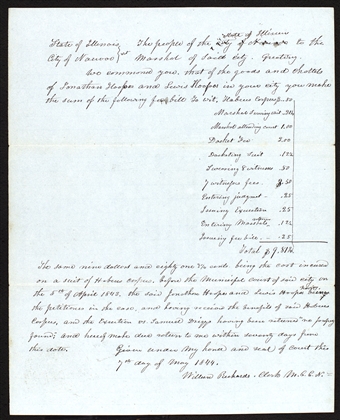 State of Illinois
City of Nauvoo
The people of the State of Illinois to the
Marshal of said City. Greeting
We command you, that of the goods and chattels
of Jonathan Hooper and Lewis Hooper in your city you make
the sum of the following fee bill to wit, Habeas Corpus .50
Marshal serving writ
Marshal attending court 1.00
Docket Fee 2.00
Docketing Suit .12½
Swearing 8 witnesses .50
7 witnesses fees 3.50
Entering judgment .25
Issuing Execution .25
Entering return .12½
Issuing fee bill .25
Total $9.81¼
The same nine dollars and eighty one ¼ cents being the cost incurred
on a suit of Habeas Corpus, before the Municipal Court of said city on
the 5th of April 1843, the said Jonathan Hooper and Lewis Hooper being
the petitioners in the case, and having received the benefit of said Habeas
Corpus, and the Execution vs Samuel Driggs having been returned "no property
found"; and hereof make due return to me within seventy days from
this date. Given under my hand and seal of court this
7th day of May 1844.
Willard Richards - Clerk M.C.C.N.